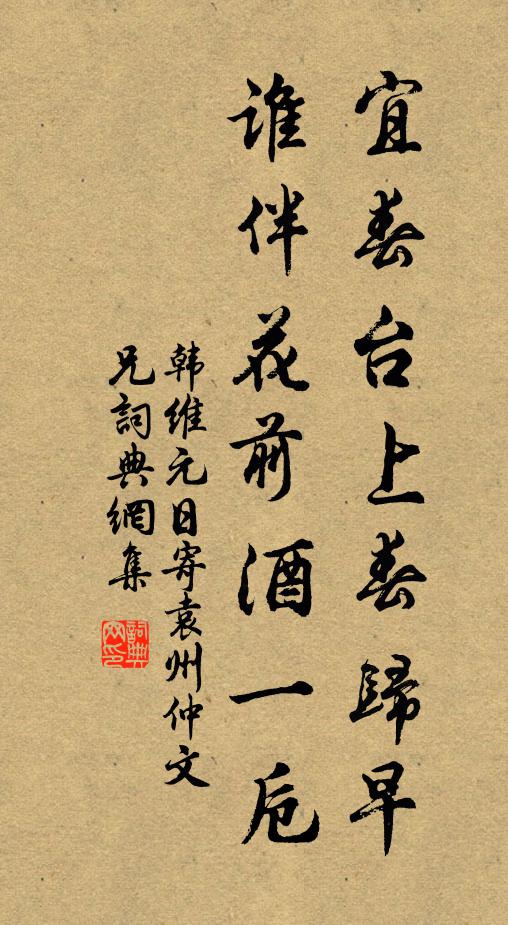 宜春台上春歸早
誰伴花前酒一卮
韩維元日寄袁州仲文
兄詞典網集
詞典
网印